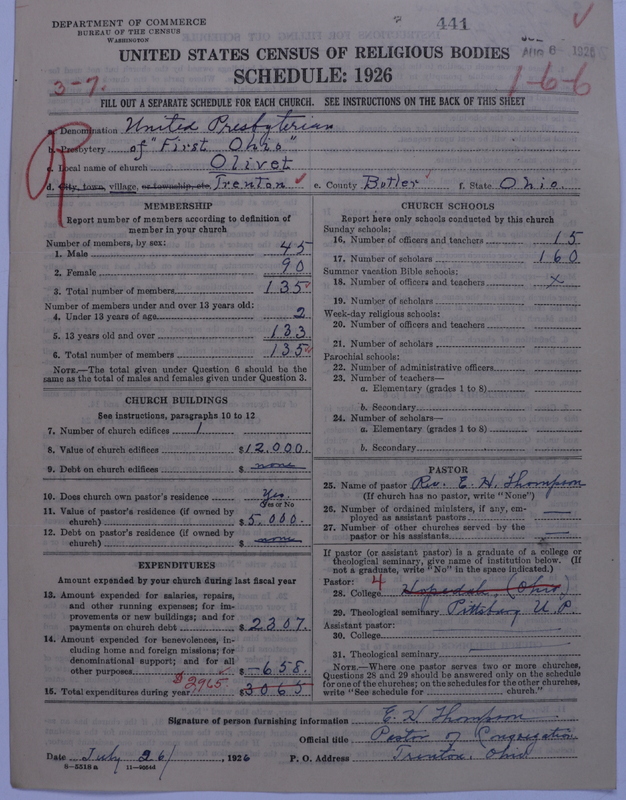 DEPARTMENT OF COMMERCE
BUREAU OF THE CENSUS
WASHINGTON
441
AUG 6 - 1926
UNITED STATES CENSUS OF RELIGIOUS BODIES
SCHEDULE: 1926
3-7.
1-6-6
FILL OUT A SEPARATE SCHEDULE FOR EACH CHURCH. SEE INSTRUCTIONS ON THE BACK OF THIS SHEET
a. Denomination United Presbyterian
b. Presbytery of "First Ohio"
c. Local name of church Olivet
d. City, town, village, or township, etc. Trenton e. County Butler f. State Ohio.
MEMBERSHIP
Report number of members according to definition of
member in your church
Number of members, by sex:
1. Male 45
2. Female 90
3. Total number of members 135
Number of members under and over 13 years old:
4. Under 13 years of age 2
5. 13 years old and over 133
6. Total number of members 135
NOTE.—The total given under Question 6 should be the
same as the total of males and females given under Question 3.
CHURCH BUILDINGS
See instructions, paragraphs 10 to 12
7. Number of church edifices 1
8. Value of church edifices $12.000.
9. Debt on church edifices $ none
10. Does church own pastor's residence Yes.
Yes or No
11. Value of pastor's residence (if owned by
church) $5.000.
12. Debt on pastor's residence (if owned by
church) $ none
EXPENDITURES
Amount expended by your church during last fiscal year
13. Amount expended for salaries, repairs,
and other running expenses; for im-
provements or new buildings; and for
payments on church debt $2307.
14. Amount expended for benevolences, in-
cluding home and foreign missions; for
denominational support; and for all
other purposes $ 658.
$2965
15. Total expenditures during year $3065
CHURCH SCHOOLS
Report here only schools conducted by this church
Sunday schools:
16. Number of officers and teachers 15
17. Number of scholars 160
Summer vacation Bible schools:
18. Number of officers and teachers x
19. Number of scholars
Week-day religious schools:
20. Number of officers and teachers
21. Number of scholars
Parochial schools:
22. Number of administrative officers
23. Number of teachers—
a. Elementary (grades 1 to 8)
b. Secondary
24. Number of scholars—
a. Elementary (grades 1 to 8)
b. Secondary
PASTOR
25. Name of pastor Rev. E. H. Thompson
(If church has no pastor, write "None")
26. Number of ordained ministers, if any, em-
ployed as assistant pastors —
27. Number of other churches served by the
pastor or his assistants —
If pastor (or assistant pastor) is a graduate of a college or
theological seminary, give name of institution below. (If
not a graduate, write "No" in the space indicated.)
Pastor: 4
28. College Hopedale (Ohio)
29. Theological seminary Pittsburg U.P.
Assistant pastor:
30. College
31. Theological seminary
NOTE.—Where one pastor serves two or more churches,
Questions 28 and 29 should be answered only on the schedule
for one of the churches; on the schedules for the other churches,
write "See schedule for church."
Signature of person furnishing information E. H. Thompson
Official title Pastor of Congregation
Date July 26/, 1926 P. O. Address Trenton, Ohio
8-5518 a